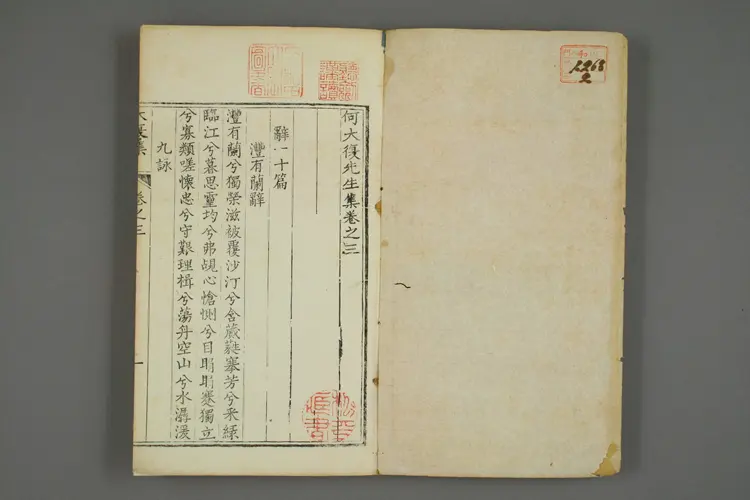 何大復先生集卷之三
辭一十篇
灃有蘭辭
灃有蘭兮獨榮滋被覆沙汀兮含葳蕤搴芳兮采綠
臨江兮暮思靈均兮弗覿心愴惻兮目眀眀蹇獨立
兮寡類嗟懷忠兮守艱理楫兮蕩舟空山兮水潺湲
九詠
大復集
卷之三
1268
2